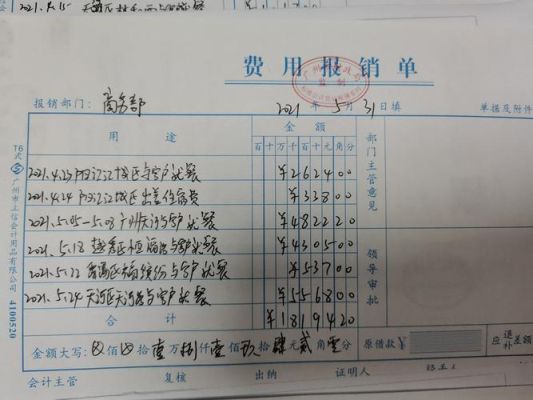 2021.5.15
费用报销单
报销部门: 商务部 2021 年 5 月 31 日填 单据及附件
用途 金额 部门主管意见
百 十 万 千 百 十 元 角 分
2021.4.23 阳江江城区与客户就餐 ¥262400
2021.4.24 阳江江城区出差住宿费 ¥33800
2021.5.05-5.08 广州天河与客户就餐 ¥482220
2021.5.18 越秀区 与客户就餐 ¥430500 领导审批
2021.5.22 番禺区 与客户就餐 ¥53700
2021.5.24 天河区天河 与客户就餐 ¥556800
合计 ¥1819420
金额大写: 佰 拾 壹 万 捌 仟 壹 佰 玖 拾 肆 元 贰 角 零 分 原借款 ¥ 应退补差额
会计主管 复核 出纳 证明人
T6式 广州市上信会计用品有限公司 4100520